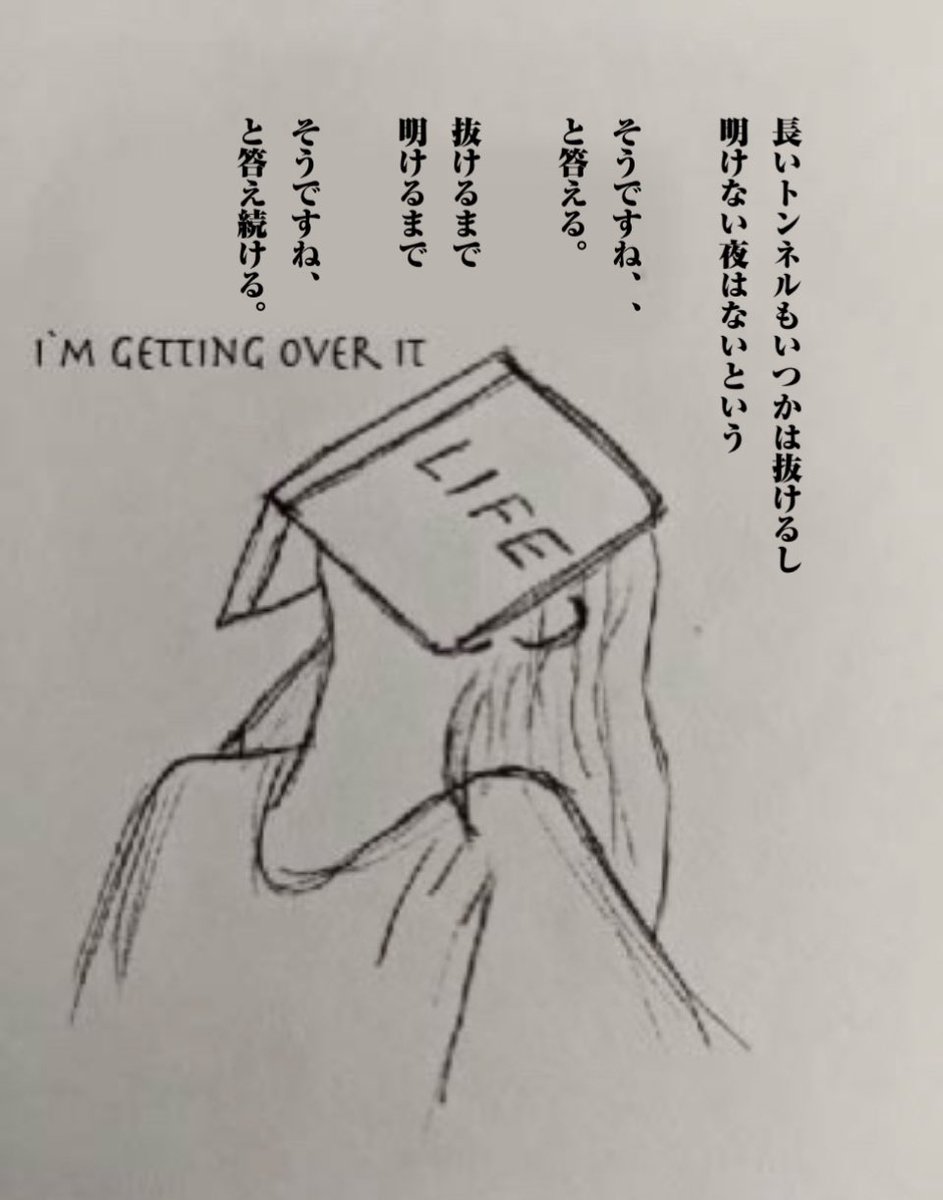 長いトンネルもいつかは抜けるし
明けない夜はないという
そうですね、、
と答える。
抜けるまで
明けるまで
そうですね、
と答え続ける。
I`M GETTING OVER IT
LIFE